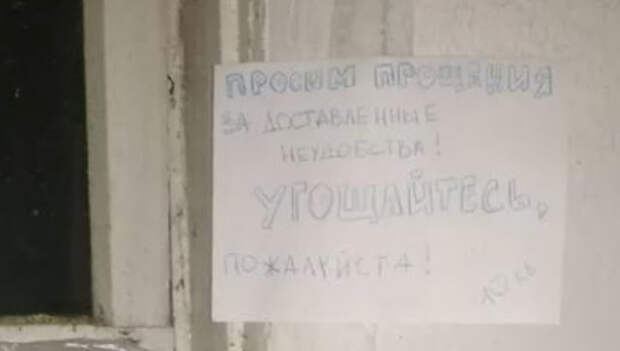 ПРОСИМ ПРОЩЕНИЯ
ЗА ДОСТАВЛЕННЫЕ
НЕУДОБСТВА!
УГОЩАЙТЕСЬ,
ПОЖАЛУЙСТА!